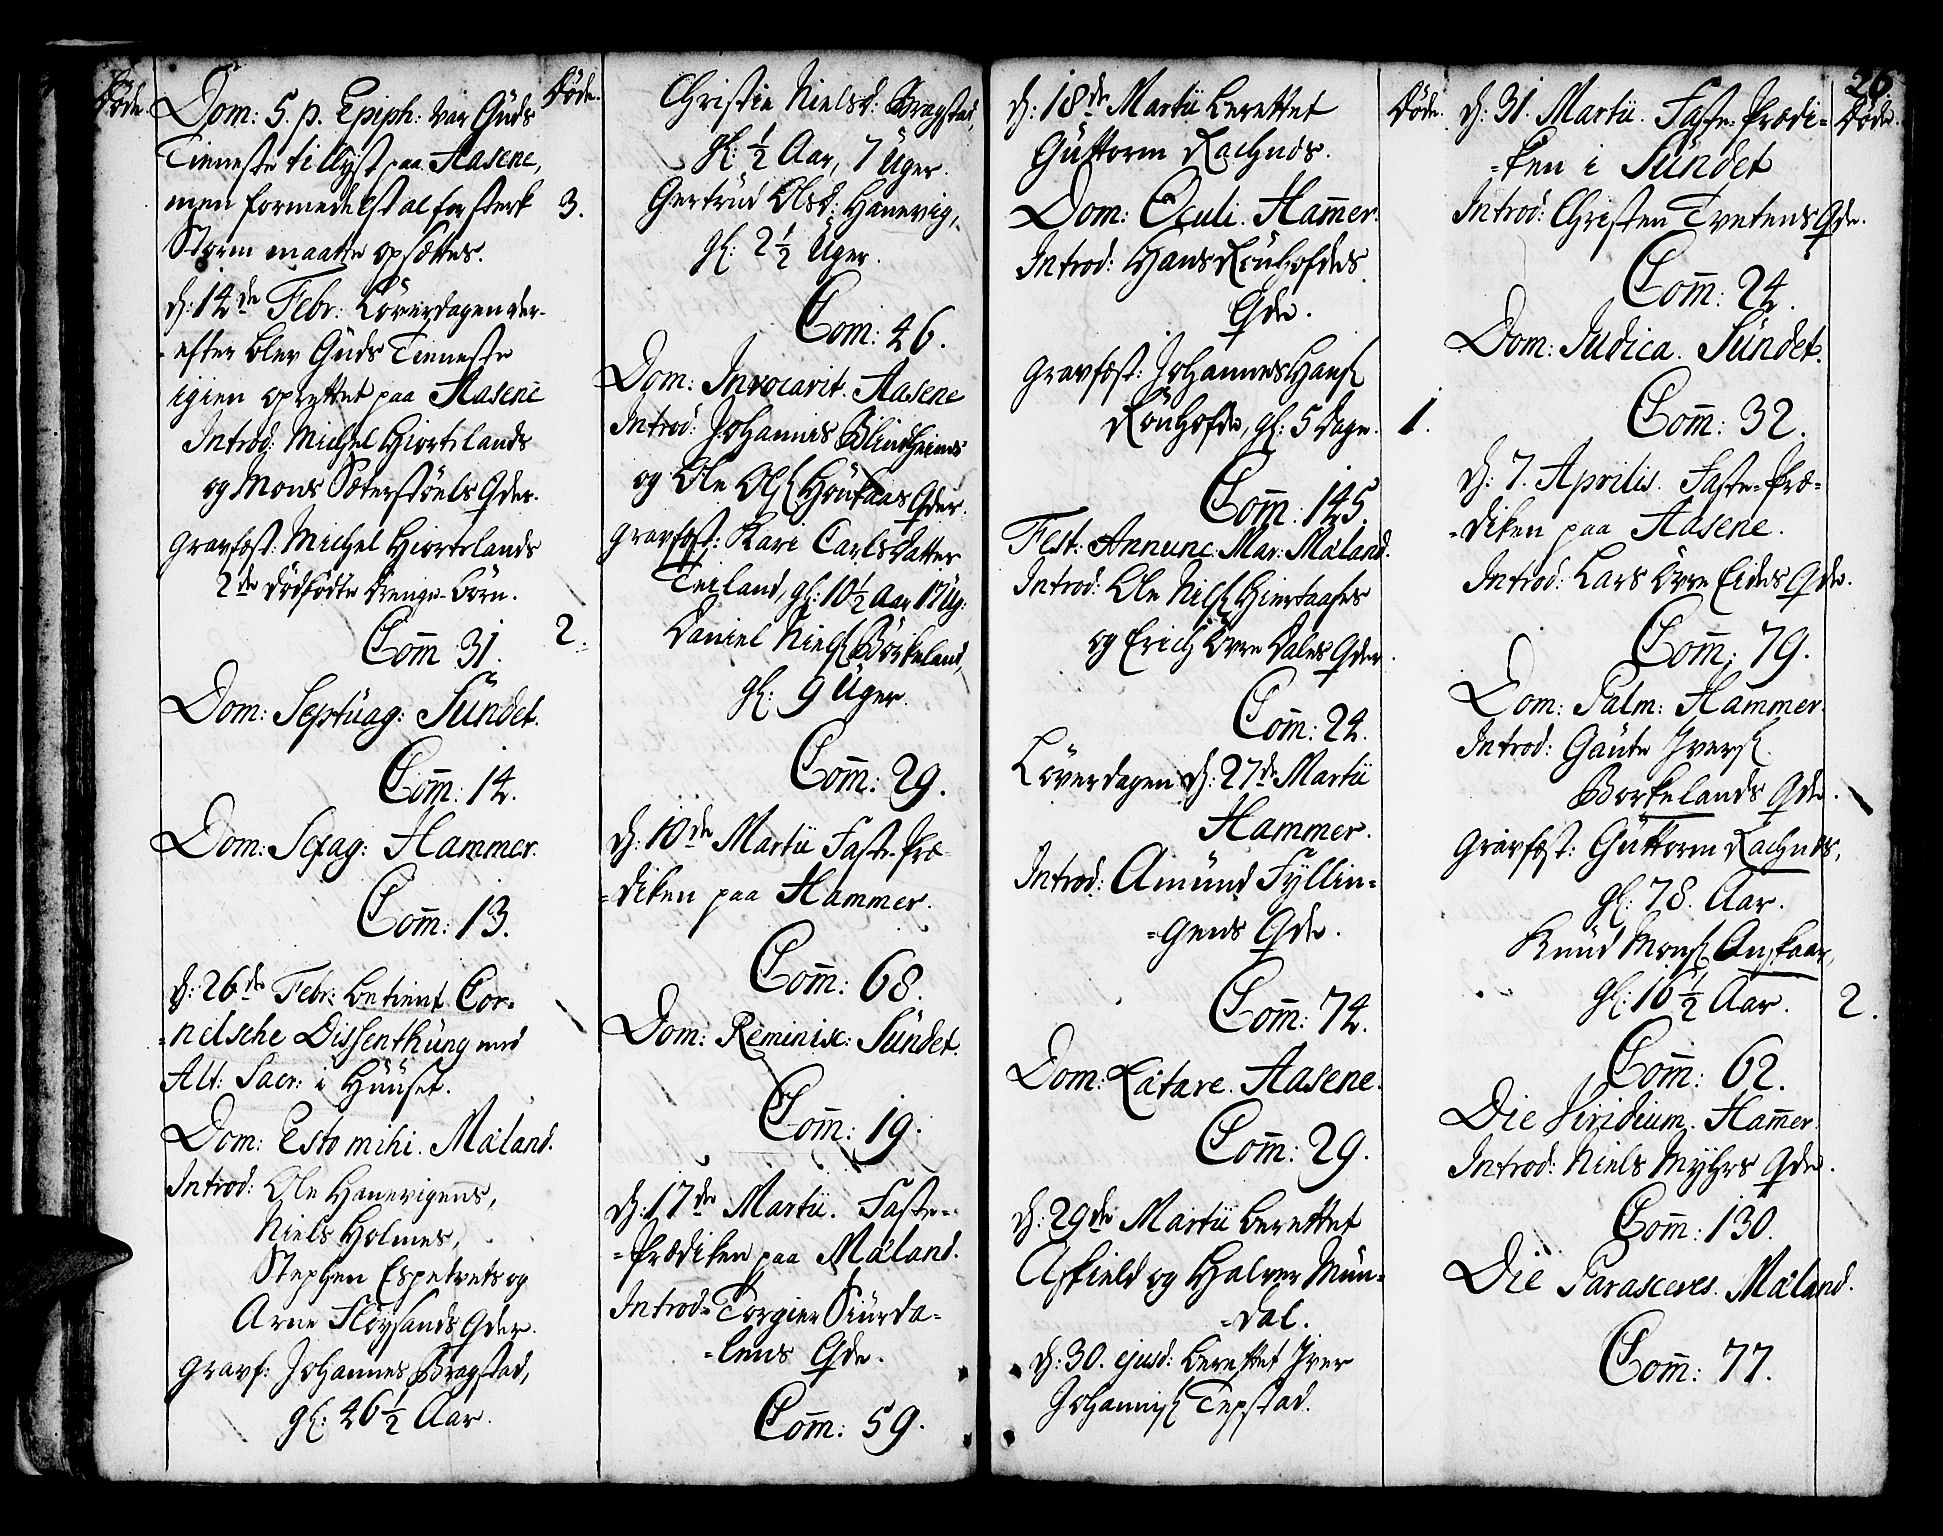 Døde.
Dom: 5. p. Epiph: var Guds
Tieneste tillyst paa Aasene,
men formedelst alfor sterk
Storm maatte opsættes.
d: 14de Febr: Løverdagen der-
-efter blev Guds Tieneste
igien oprettet paa Aasene
Introd: Michel Hiortelands
og Mons Sæterstøels Qder.
Gravfæst: Michel Hiortelands
2de dødfødte Drenge-Børn.
Com̄ 31.
Dom: Septuag: Sundet.
Com̄: 14.
Dom: Sexag: Hammer.
Com̄: 13.
d: 26de Febr: betient Cor-
-nelsche Dissenthung med
Alt: Sacr: i Huuset.
Dom: Esto mihi. Mæland.
Introd: Ole Hanevigens,
Niels Holmes,
Stephen Espetvets og
Arne Fløysands Qder.
Gravf: Johannes Bragstad,
gl: 46½ Aar.
Døde.
3.
2.
Christie Nielsd: Bragstad,
gl: ½ Aar, 7 Uger.
Gertrud Olsd: Hanevig,
gl: 2½ Uger.
Com: 46.
Dom: Invocavit. Aasene
Introd: Johannes Blindheims
og Ole Ols. Houkaas Qder.
Gravfæst: Kari Carlsdatter
Teiland, gl: 10½ Aar 17 Ug:
Daniel Niels. Børkeland,
gl: 9 Uger.
Com̄: 29.
d: 10de Martii Faste-Præ-
-diken paa Hammer.
Com̄: 68.
Dom: Reminisc: Sundet.
Com̄: 19.
d: 17de Martii. Faste-
-Prædiken paa Mæland.
Introd: Torgier Siurda-
-lens Qde.
Com̄: 59.
d: 18de Martii berettet
Guttorm Rachnds.
Dom: Oculi. Ham̄er.
Introd: Hans Rønhofdes
Qde.
Gravfæst: Johannes Hans.
Rønhofde, gl: 5 Dage.
Com̄: 145.
Fest: Annunc: Mar: Mæland.
Introd: Ole Nils. Hiertaases
og Erich Øvre Dales Qder.
Com̄: 24.
Løverdagen d: 27de Martii
Hammer.
Introd: Amund Fyllin-
-gens Qde.
Com̄: 74.
Dom: Lætare. Aasene.
Com̄: 29.
d: 29de Martii berettet
Askield og Halver Mun-
-dal.
d: 30. ejusd: berettet Iver
Johannis. Tepstad.
Døde.
1.
26.
d: 31. Martii. Faste-Prædi-
-ken i Sundet
Introd: Christen Tvetens Qde.
Com̄: 24.
Dom: Judica. Sundet.
Com̄: 32.
d: 7. Aprilis. Faste-Præ-
-diken paa Aasene.
Introd: Lars Øvre Eides Qde.
Com̄: 79.
Dom: Palm: Hammer.
Introd: Gaute Ivers.
Borkelands Qde.
Gravfæst: Guttorm Rachnds,
gl: 78. Aar.
Knud Mons. Onskaar,
gl: 16½ Aar.
Com̄: 62.
Die Viridium. Ham̄er.
Introd: Niels Myhrs Qde.
Com̄: 130.
Die Parasceves. Mæland.
Com̄: 77.
Døde.
2.